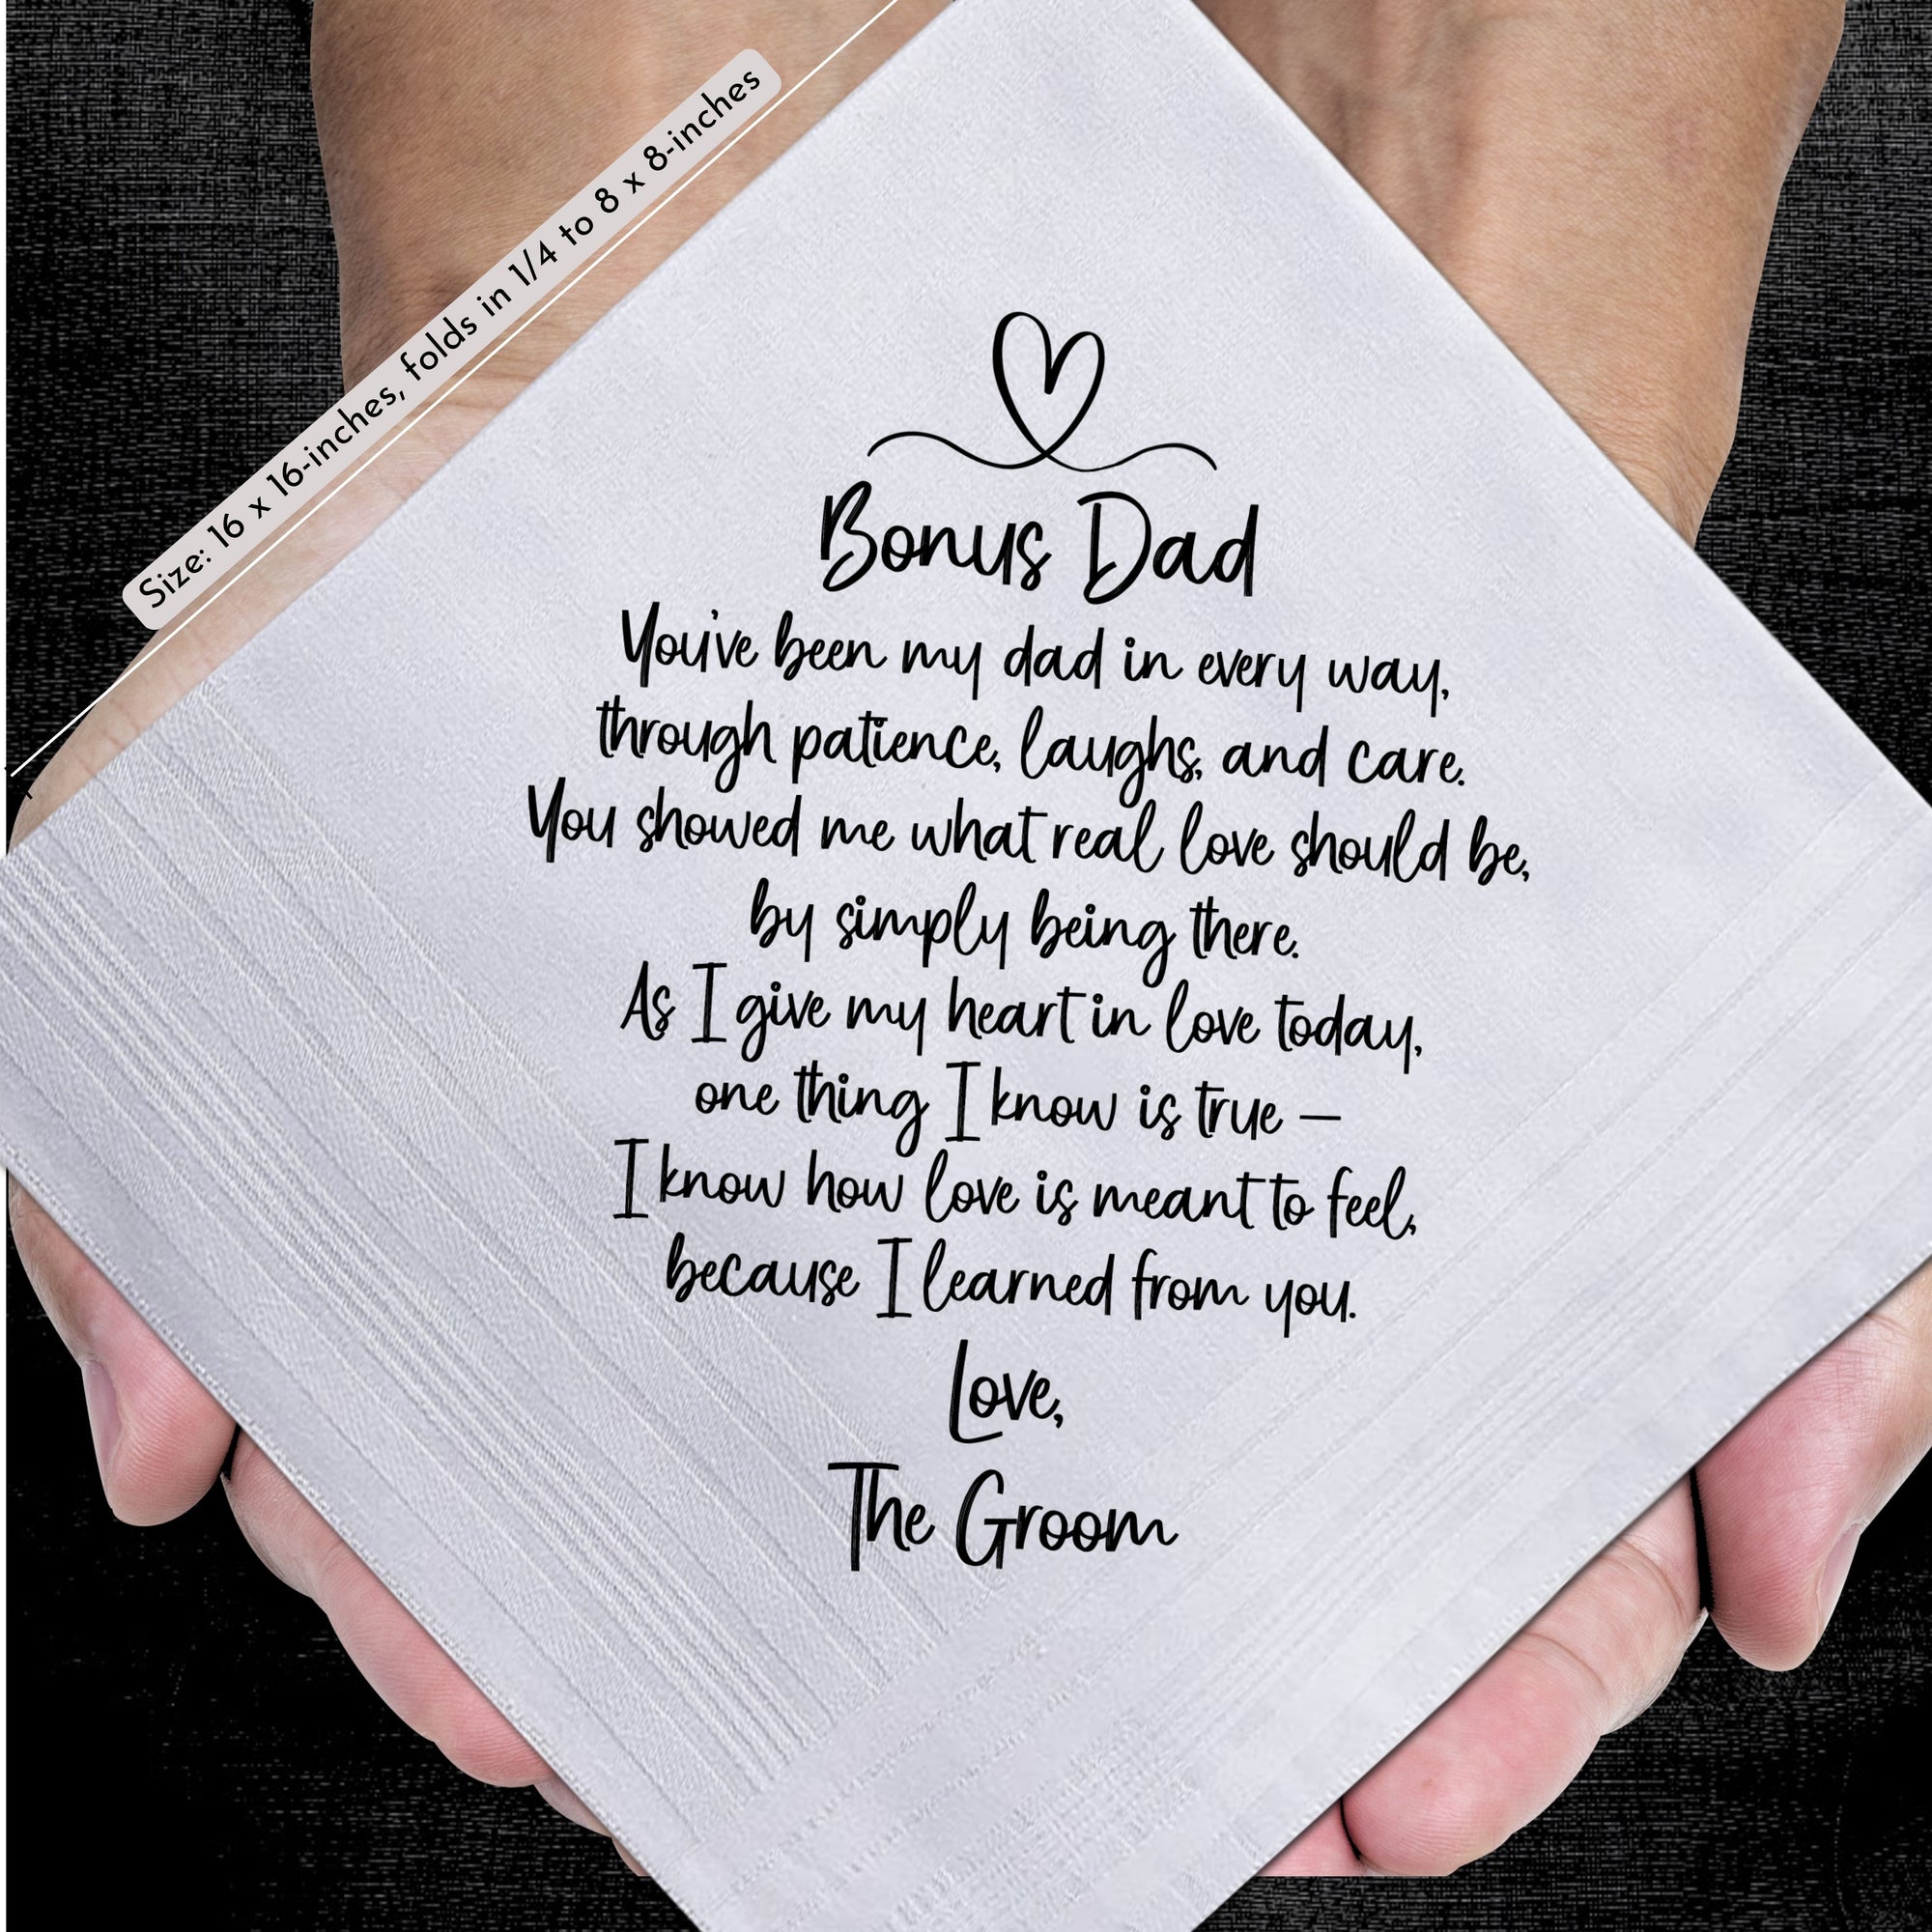 Size: 16 x 16-inches, folds in 1/4 to 8 x 8-inches
Bonus Dad
You've been my dad in every way,
through patience, laughs, and care.
You showed me what real love should be,
by simply being there.
As I give my heart in love today,
one thing I know is true —
I know how love is meant to feel,
because I learned from you.
Love,
The Groom